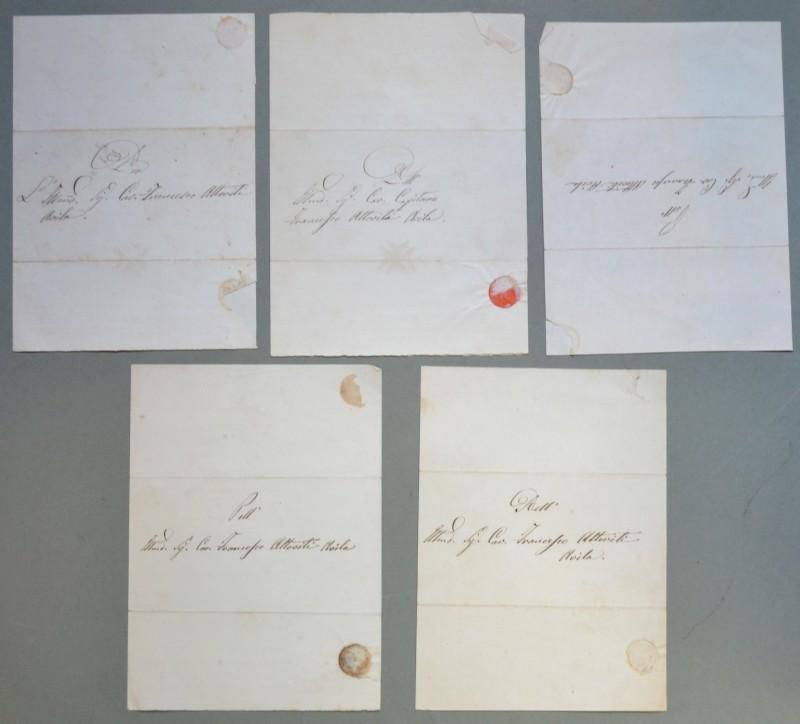 L'Illmo. Sig. Cav. Francesco Altoviti
Avila
All'
Illmo. Sig. Cav. Capitano
Francesco Altoviti Avila.
Pell'
Illmo. Sig. Cav. Francesco Altoviti Avila
Pell'
Illmo. Sig. Cav. Francesco Altoviti Avila
Illmo. Sig. Cav. Francesco Altoviti
Avila.